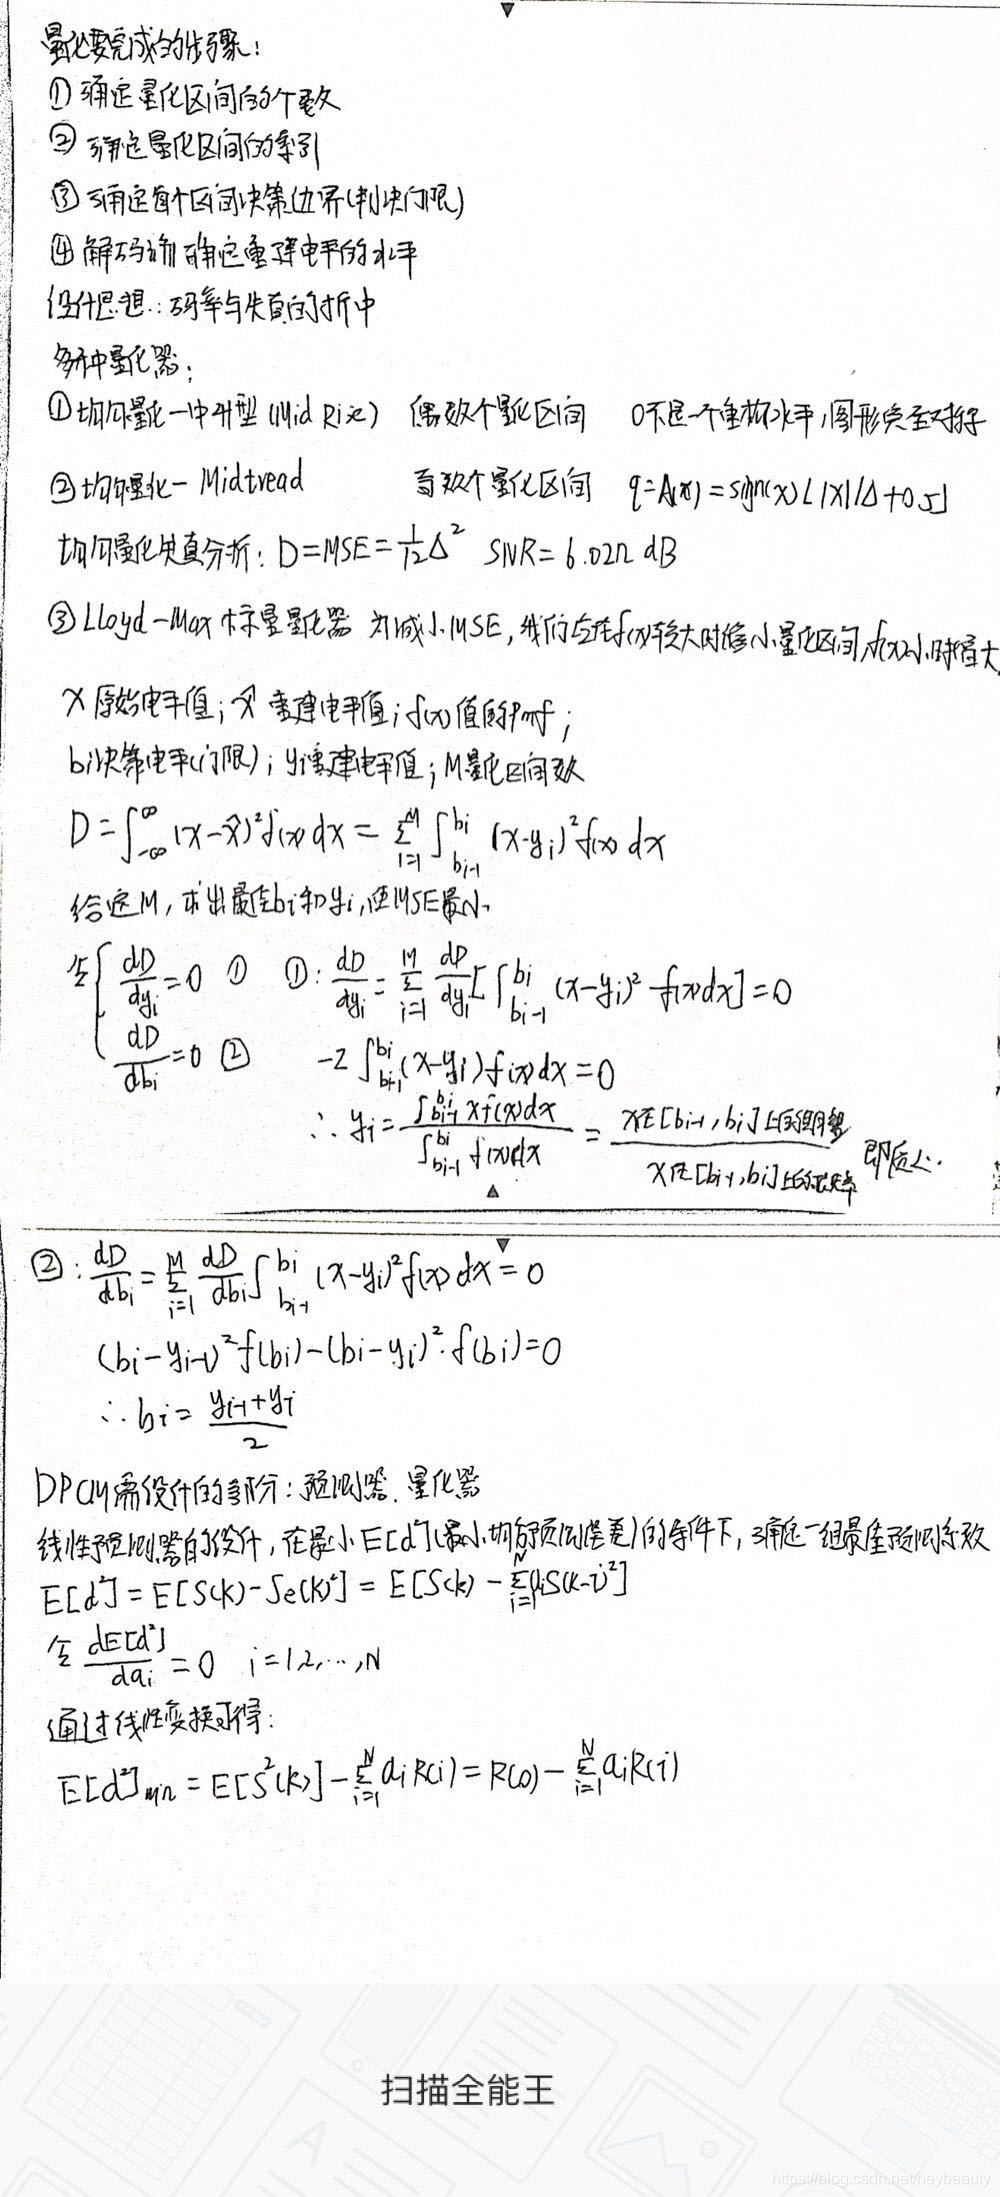 量化要完成的步骤:
① 确定量化区间的个数
② 确定量化区间的索引
③ 确定每个区间决策边界(判决门限)
④ 解码端确定重建电平的水平
设计思想: 码率与失真的折中
多种量化器:
① 均匀量化-中升型 (Mid Rise) 偶数个量化区间 0不是一个重构水平,图形完全对称
② 均匀量化- Midtread 奇数个量化区间 q=A(x)=sign(x)⌊|x|/Δ+0.5⌋
均匀量化失真分析: D=MSE=1/12 Δ² SNR=6.02n dB
③ Lloyd-Max 标量量化器 为减小MSE, 我们应在f(x)较大时缩小量化区间,f(x)小时增大
x 原始电平值; x̂ 重建电平值; f(x) 值的Pmf;
bi决策电平(门限); yi重建电平值; M量化区间数
D=∫_{-∞}^{∞}(x-x̂)²f(x)dx = Σ_{i=1}^{M}∫_{bi-1}^{bi}(x-yi)²f(x)dx
给定M, 求出最佳bi和yi,使MSE最小.
令{ dD/dyi=0 ① ①: dD/dyi = Σ_{i=1}^{M} dD/dyi[∫_{bi-1}^{bi}(x-yi)² f(x)dx]=0
dD/dbi=0 ② -2∫_{bi-1}^{bi}(x-yi)f(x)dx=0
∴ yi = ∫_{bi-1}^{bi} xf(x)dx / ∫_{bi-1}^{bi} f(x)dx = x在[bi-1,bi]上的期望 / x在[bi-1,bi]上的概率 即质心.
②: dD/dbi = Σ_{i=1}^{M} dD/dbi ∫_{bi-1}^{bi} (x-yi)²f(x)dx=0
(bi-yi-1)²f(bi)-(bi-yi)²·f(bi)=0
∴ bi = (yi-1+yi)/2
DPCM需设计的部分: 预测器. 量化器
线性预测器的设计, 在最小E[d²](最小均方预测误差)的条件下, 确定一组最佳预测系数
E[d²]=E[S(k)-Se(k)²]=E[S(k)-Σ_{i=1}^{N}aiS(k-i)²]
令 dE[d²]/dai=0 i=1,2,…,N
通过线性变换可得:
E[d²]min=E[S²(k)]-Σ_{i=1}^{N}aiR(i)=R(0)-Σ_{i=1}^{N}aiR(i)
扫描全能王
https://blog.csdn.net/heybeauty